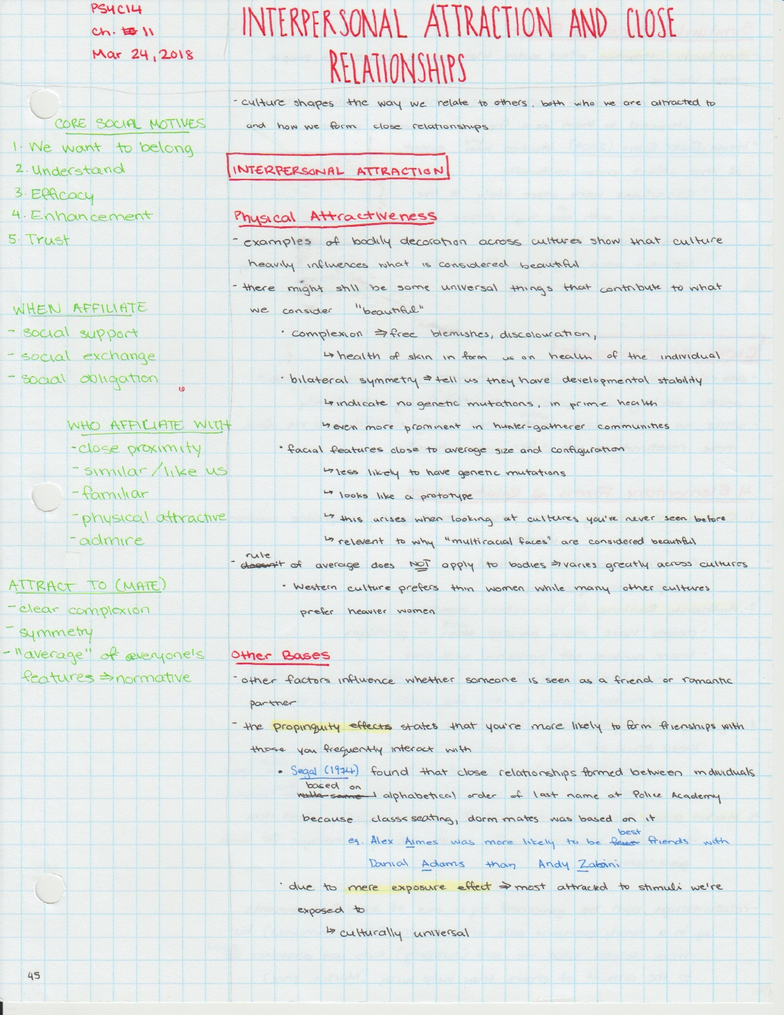 PSYC14
Ch. 11
Mar 24, 2018
INTERPERSONAL ATTRACTION AND CLOSE
RELATIONSHIPS
CORE SOCIAL MOTIVES
1. We want to belong
2. Understand
3. Efficacy
4. Enhancement
5. Trust
WHEN AFFILIATE
- social support
- social exchange
- social obligation
WHO AFFILIATE WITH
- close proximity
- similar/like us
- familiar
- physical attractive
- admire
ATTRACT TO (MATE)
- clear complexion
- symmetry
- "average" of everyone's
features ⇒ normative
- culture shapes the way we relate to others, both who we are attracted to
and how we form close relationships
INTERPERSONAL ATTRACTION
Physical Attractiveness
- examples of bodily decoration across cultures show that culture
heavily influences what is considered beautiful
- there might still be some universal things that contribute to what
we consider "beautiful"
• complexion ⇒ free blemishes, discolouration,
↳ health of skin in form us on health of the individual
• bilateral symmetry ⇒ tell us they have developmental stability
↳ indicate no genetic mutations, in prime health
↳ even more prominent in hunter-gatherer communities
• facial features close to average size and configuration
↳ less likely to have genetic mutations
↳ looks like a prototype
↳ this arises when looking at cultures you're never seen before
↳ relevent to why "multiracial faces" are considered beautiful
- rule of average does NOT apply to bodies ⇒ varies greatly across cultures
• Western culture prefers thin women while many other cultures
prefer heavier women
Other Bases
- other factors influence whether someone is seen as a friend or romantic
partner
- the propinquity effects states that you're more likely to form frienships with
those you frequently interact with
• Segal (1974) found that close relationships formed between individuals
based on alphabetical order of last name at Police Academy
because class seating, dorm mates was based on it
eg. Alex Aimes was more likely to be best friends with
Danial Adams than Andy Zabini
• due to mere exposure effect ⇒ most attracted to stimuli we're
exposed to
↳ culturally universal
45